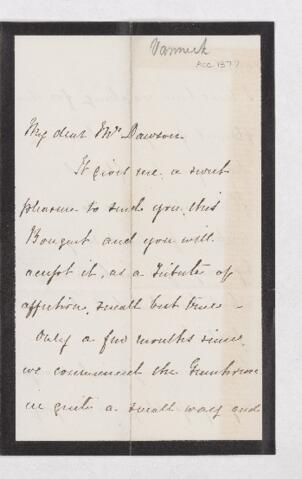 Vanneck
Acc 1377
My dear Mrs Dawson
It gives me a sweet
pleasure to send you this
Bouquet and you will
accept it, as a tribute of
affection, small but true -
Only a few months since
we commenced the Greenhouse
in quite a small way and